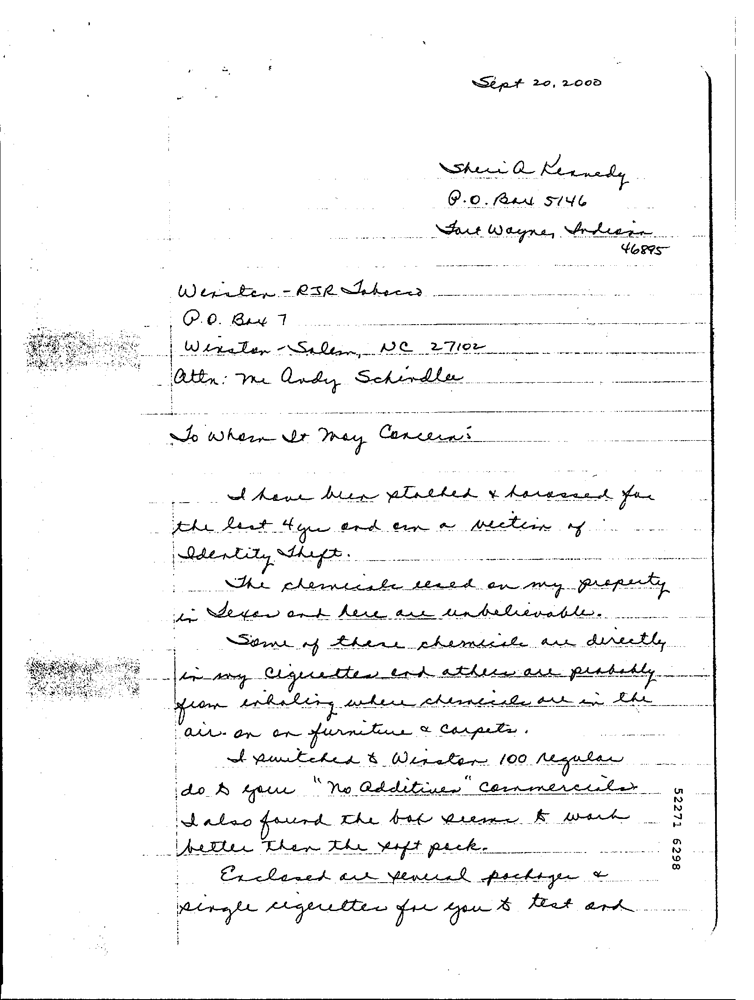 Sept 20, 2000
Sheri A Kennedy
P.O. Box 5146
Fort Wayne, Indiana
46895
Winston - RJR Tobacco
P.O. Box 7
Winston-Salem, NC 27102
Attn: Mr Andy Schindler
To Whom It May Concern:
I have been stalked & harassed for
the last 4 yrs and am a victim of
Identity Theft.
The chemicals used on my property
in Texas and here are unbelievable.
Some of these chemicals are directly
in my cigerettes and others are probably
from inhaling where chemicals are in the
air on on furniture & carpets.
I switched to Winston 100 regular
do to your "No Additives" commercials
I also found the box seems to work
better than the soft pack.
Enclosed are several packages &
single cigerettes for you to test and
52271 6298